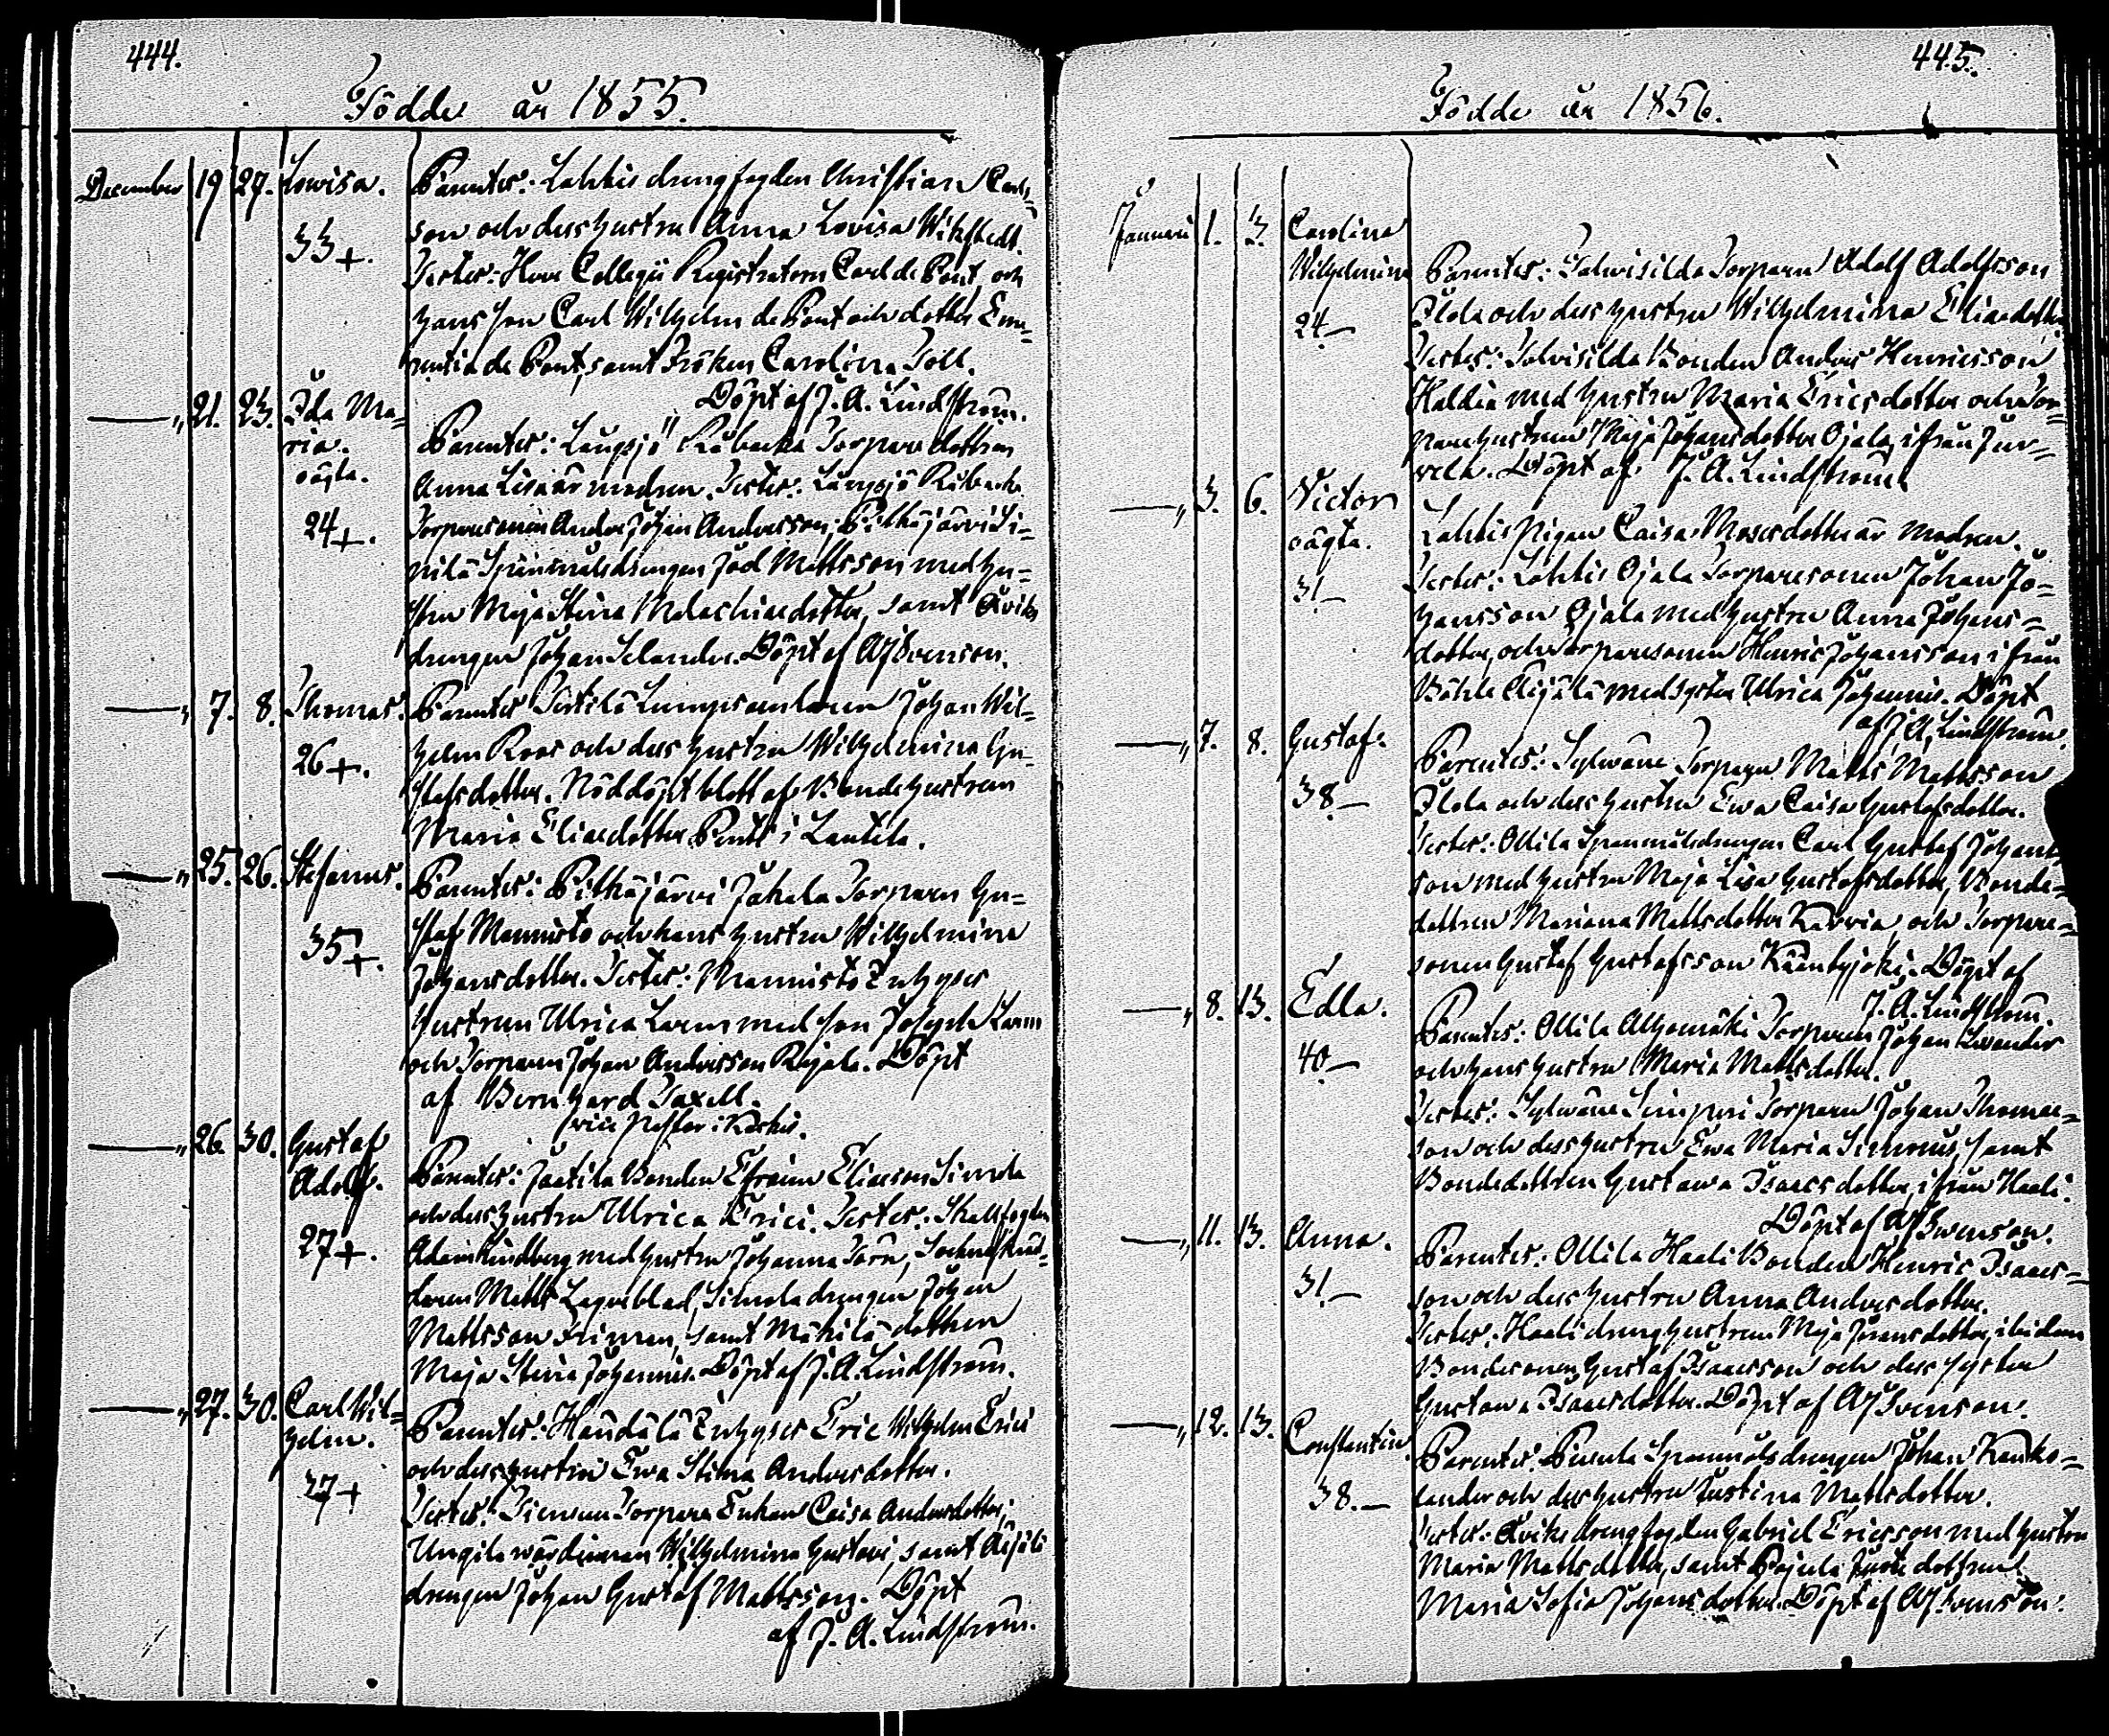 444.
Födde år 1855.
December 19 27. Lowisa. Parentes: Lahtis drengfogden Christian Carls=
33+. son och dess hustru Anna Lovisa Wikstedt.
Testes: Herr Collegii Registratorn Carl de Pont, och
hans son Carl Wilhelm de Pont och dotter Eme=
rentia de Pont, samt Fröken Carolina Toll.
Döpt af J. A. Lindström.
—„ 21. 23. Ida Ma=
ria. Parentes: Laupjo Råbacka Torpare dottren
oägta. Anna Lisa är modren. Testes: Råbacka
24+. Torparesonen Anders Johan Andersson, Pitkäjärvi Si=
pilä Spinnmålsdrengen Joel Mattsson med hu=
stru Maja Stina Malachiaedotter, samt Qvik
drengen Johan Selander. Döpt af AJSvenson.
—„ 7. 8. Thomas. Parentes Lumpsamlaren Johan Wil=
26+. helm Roos och dess hustru Wilhelmina Gu=
stafsdotter. Nöddöpt blott af Bonde hustrun
Maria Eliaedotter Pentti i Lautela.
—„ 25. 26. Stefanus. Parentes: Pitkäjärvi Jakala Torparen Gu=
35+. staf Mannisto och hans hustru Wilhelmina
Johansdotter. Testes: Mannisto Inhyses
hustrun Ulrica Lorm med son Joseph Lorm
och Torparen Johan Andersson Rajala. Döpt
af Bernhard Taxell.
vice Pastor i Karkis.
—„ 26. 30. Gustaf
Adolf. Parentes: Jaatila Bonden Efraim Eliaeson Simola
och dess hustru Ulrica Erici. Testes: Skallfogden
27+. Adam Lindberg med hustru Johanna Törn,
Matts Lagerblad, Simola drengen Johan
Mattsson Friman, samt Mäkilä dottren
Maja Stina Johannis. Döpt af J. A. Lindström.
—„ 27. 30. Carl Wil=
helm. Parentes: Handälä Inhyses Eric Wilhelm Erici
och dess hustru Ewa Stina Andersdotter.
37+ Testes: Torpare Enkan Caisa Andersdotter,
Ungila wärdinnan Wilhelmina Gustavi, samt
drengen Johan Gustaf Mattsson. Döpt
af J. A. Lindström.
445.
Födde år 1856.
Januari 1. 3. Carolina
Wilhelmina Parentes: Talwisilda Torparen Adolf Adolfsson
24— Ilola och dess hustru Wilhelmina Eliaedotter
Testes: Talvisilda Bonden Anders Henricsson
Haldia med hustru Maria Ericsdotter och Tor=
pare hustrun Maja Johansdotter Ojala, ifrån Jur=
vela. Döpt af J. A. Lindström
—„ 3. 6. Victor
oägta. Lahtis Pigan Caisa Mosesdotter är modren.
31— Testes: Lahtis Ojala Torparesonen Johan Jo=
hansson Ojala med hustru Anna Johans=
dotter, och Torparesonen Henric Johansson ifrån
med syster Ulrica Johannis. Döpt
af J. A. Lindström.
—„ 7. 8. Gustaf. Parentes: Sylwäne Torparen Matts Mattsson
38— Ilola och dess hustru Ewa Caisa Gustafsdotter.
Testes: Ollila Spanmålsdrengen Carl Gustaf Johans
son med hustru Maja Lisa Gustafsdotter, Bonde=
dottren Mariana Mattsdotter Karria och Torpare=
sonen Gustaf Gustafsson Kämbyjoki. Döpt af
J. A. Lindström.
—„ 8. 13. Edla. Parentes: Ollila Alhomäki Torparen Johan Lwander
40— och hans hustru Maria Mattsdotter.
Testes: Sylwäne Simpuri Torparen Johan Thomae=
son och dess hustru Ewa Maria Simonis, samt
Bondedottren Gustawa Isaacsdotter, ifrån Haali.
Döpt af AJSwenson.
—„ 11. 13. Anna. Parentes: Ollila Haali Bonden Henric Isaacs=
31— son och dess hustru Anna Andersdotter.
Testes: Haali dreng hustrun Maja Göransdotter, ibidem
Bondesonen Gustaf Isaacsson och dess syster
Gustawa Isaacsdotter. Döpt af AJSvenson.
—„ 12. 13. Constantin. Parentes: Pusula Spanmålsdrengen Johan Kanko=
38.— lander och dess hustru Justina Mattsdotter.
Testes: Qvike drengfogden Gabriel Ericsson med hustru
Maria Mattsdotter, samt Pajula dottren
Maria Sofia Johansdotter. Döpt af AJSvenson.